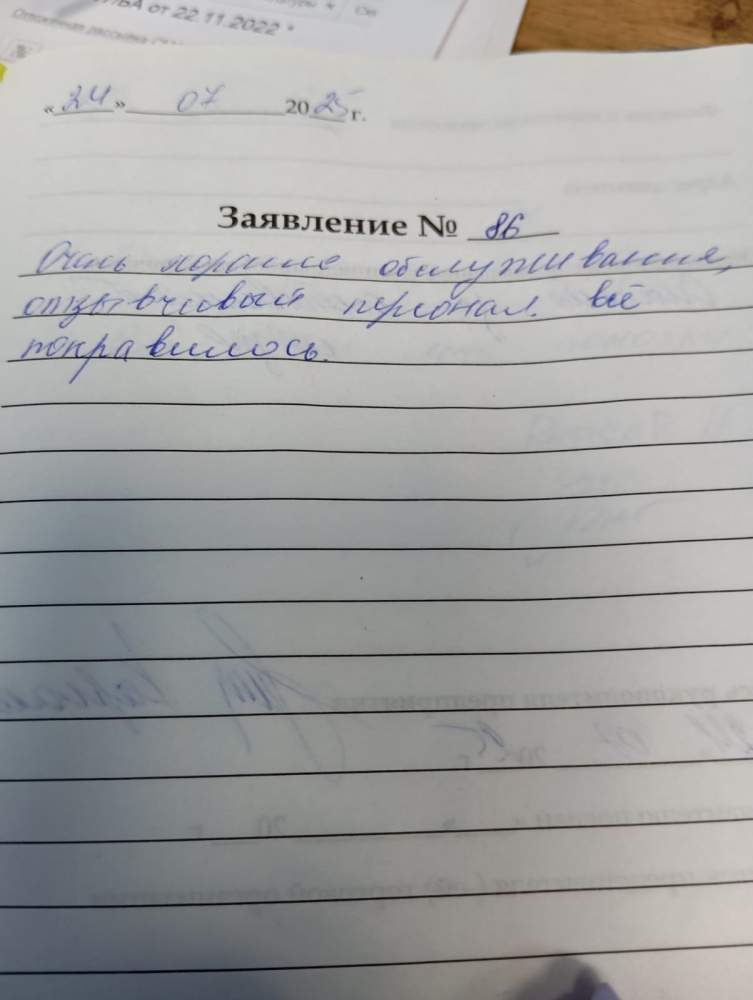 от 22.11.2022
«24» 07 2025 г.
Заявление № 86
Очень хорошее обслуживание,
отзывчивый персонал. всё
понравилось.